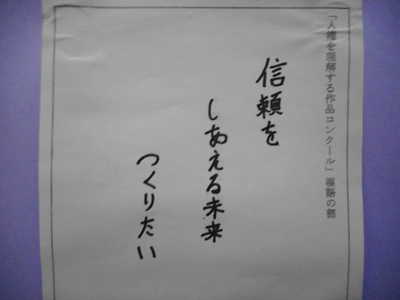 「人権を理解する作品コンクール」標語の部
信頼を
しあえる未来
つくりたい